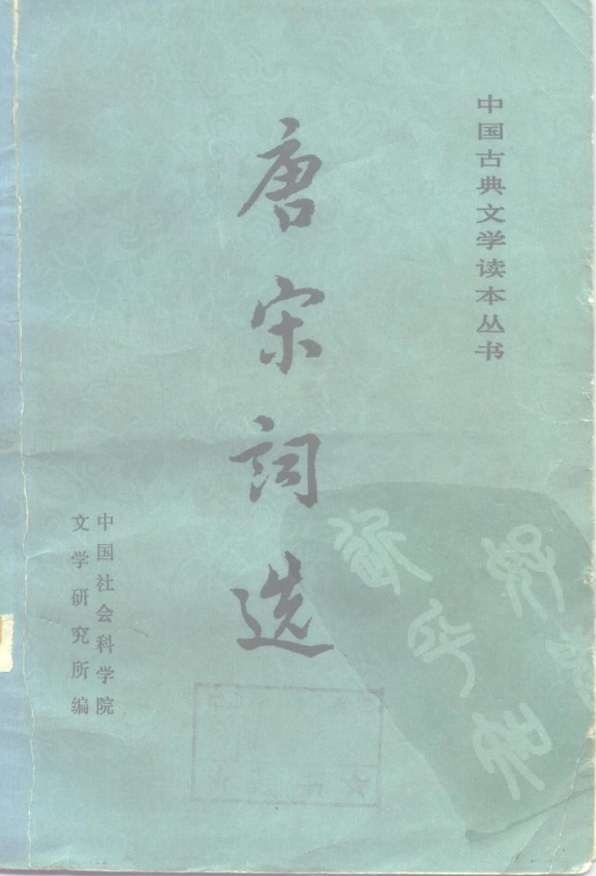 中国古典文学读本丛书
唐宋詞选
中国社会科学院
文学研究所编